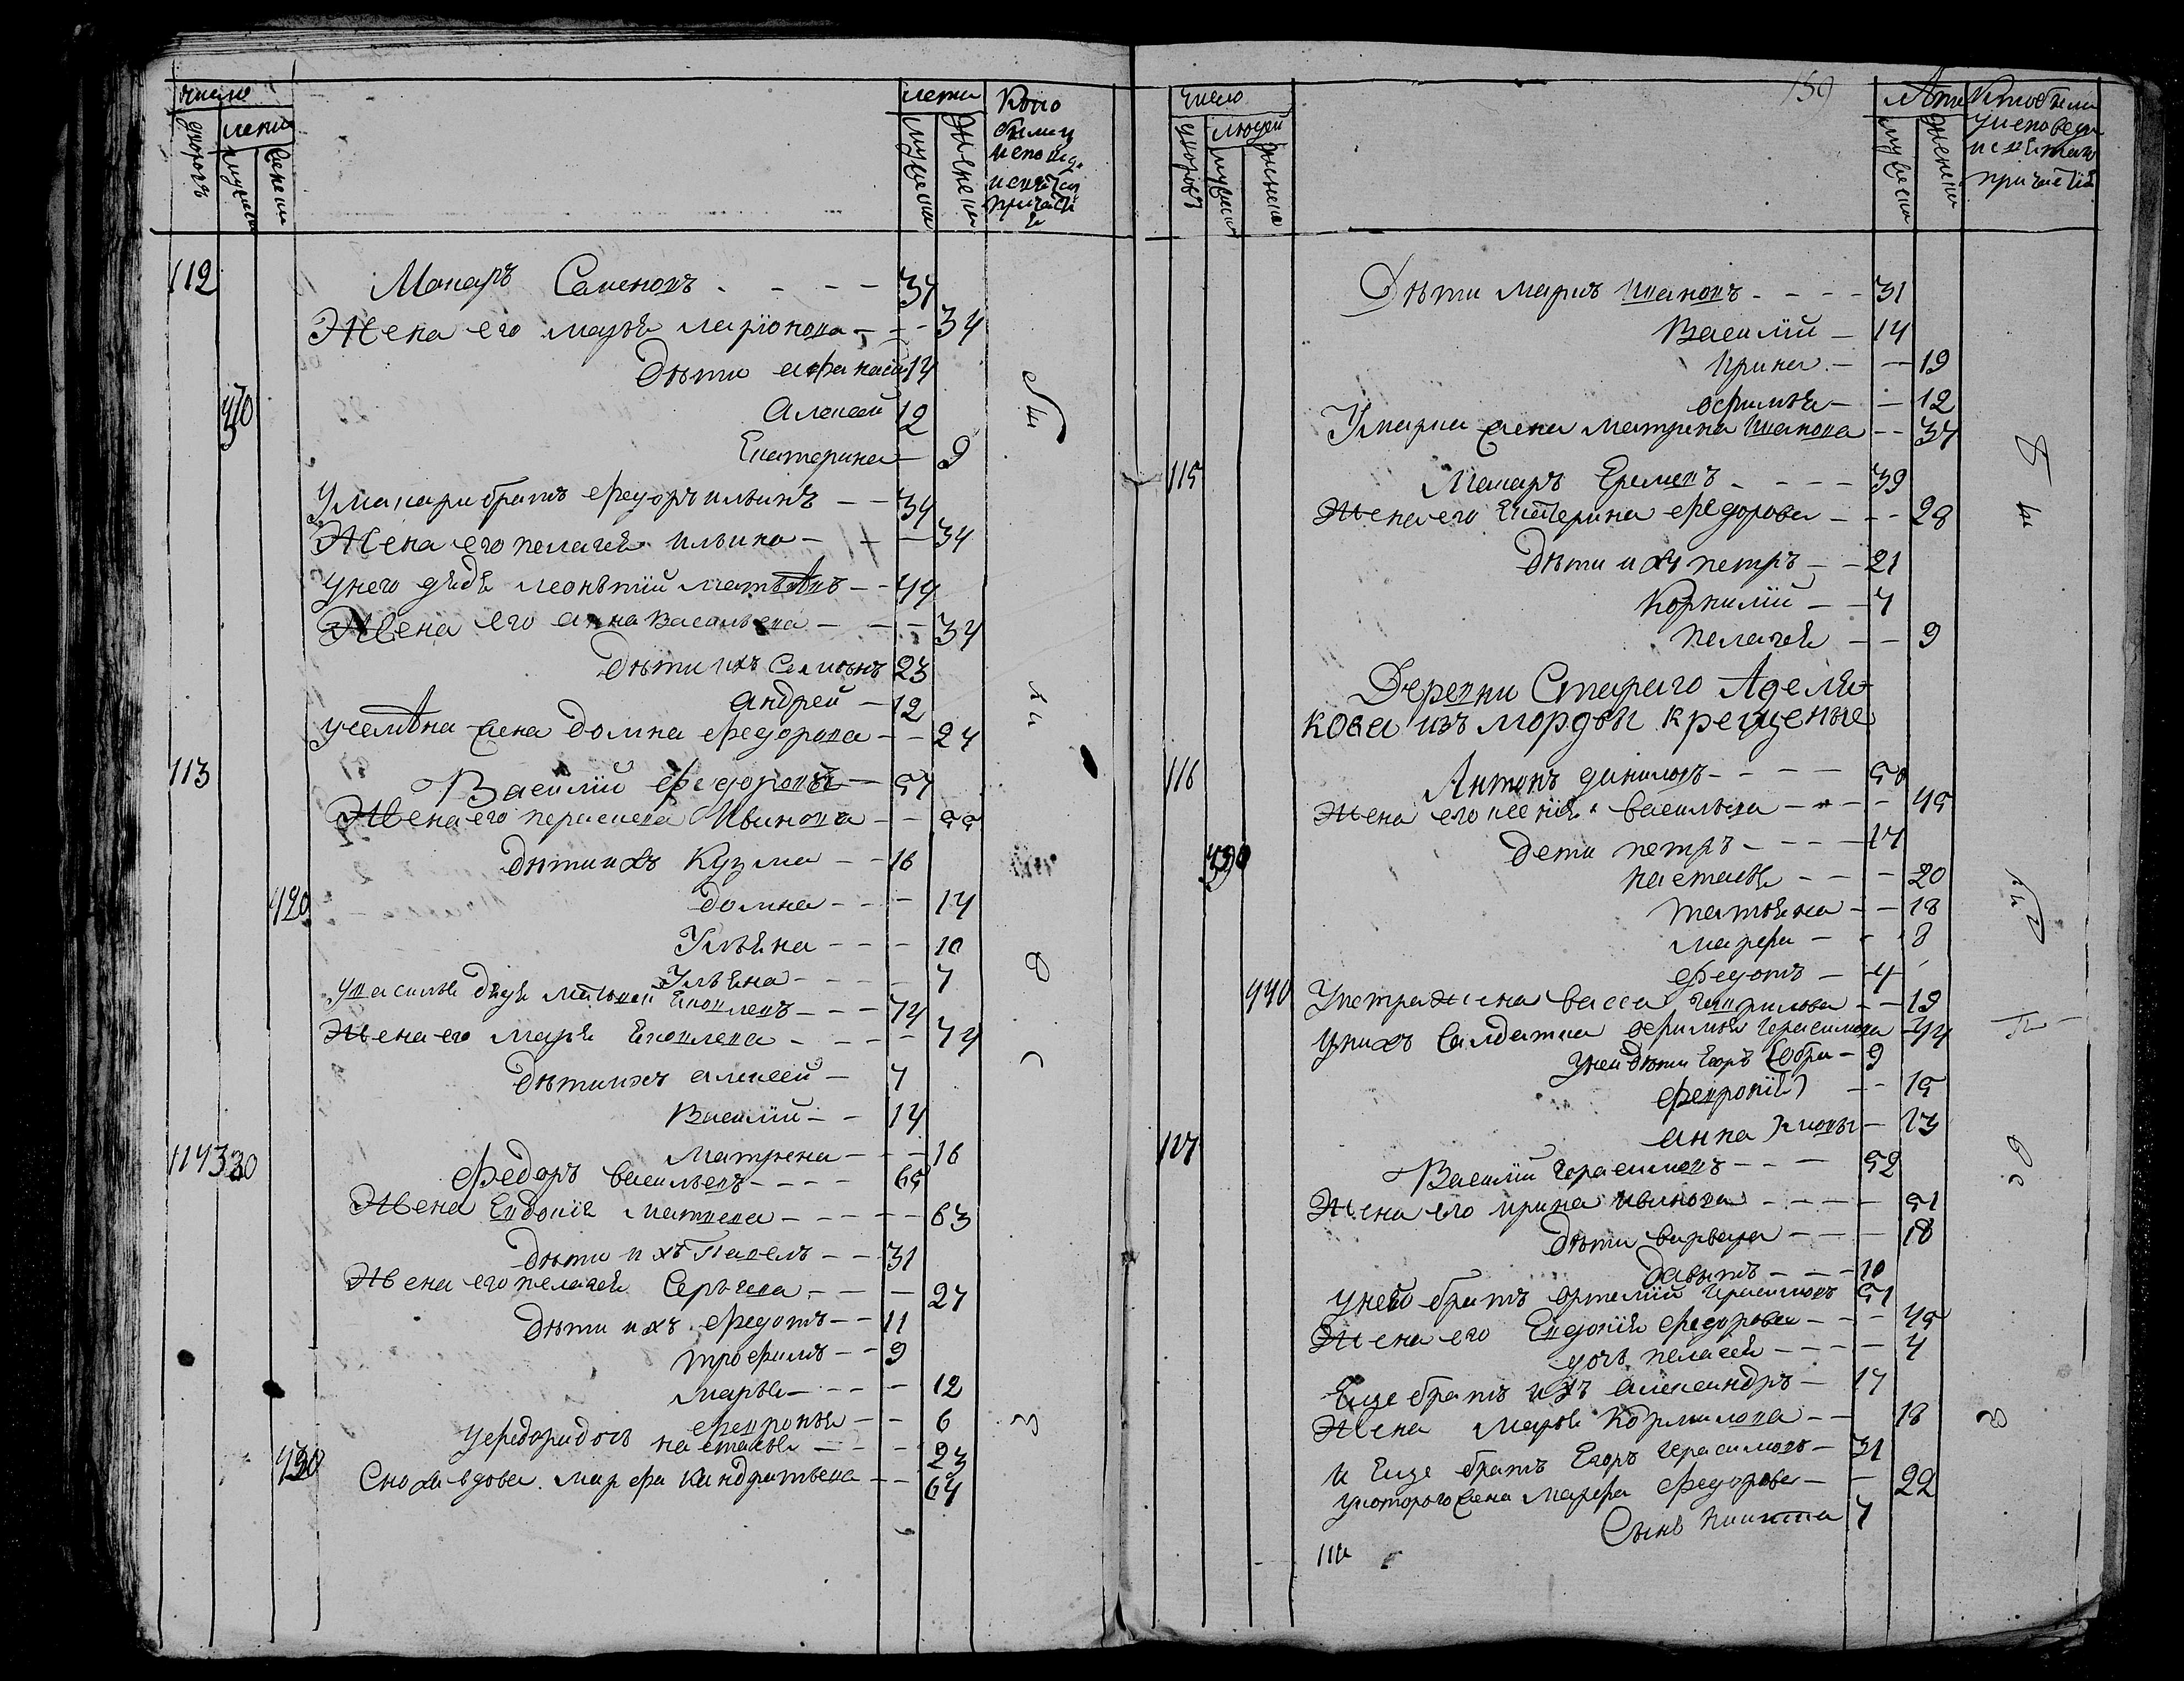 число
лета
Кто
дворовъ
лета
мужеска
женска
были у
исповеди
и святаго
причасти
я
мужеска
женска
112
Макаръ Саменовъ - - - - 37
Жена его марья ларионова - - - 34
Дѣти афанасий 14
310
Алексей 12
Екатерина - 9
У макара братъ федоръ ильинъ - - 34
Жена его пелагея ильина - - - 34
У него дядя леонътий матвѣевъ - - 44
Жена его анна васильева - - - 34
Дѣти ихъ Семионъ 23
андрей - 12
У семѣна жена домна федорова - - 24
113
Василий федоровъ - 57
Жена его парасковa Иванова - - 55
Дѣти ихъ Кузма - - 16
420
домна - - - 14
Ульяна - - - 10
Ульяна - - - - 7
У василья дядя Яковлевъ - - - 74
Жена его Марья Яковлева - - - - 74
Дѣти ихъ алексей - 7
Василий - - 14
Матрена - - - 16
114 320
Федоръ васильевъ - - - - 65
Жена Евдокия матвеева - - - - - 63
Дѣти ихъ Павелъ - - 31
Жена его пелагея Сергеева - - - 27
Дѣти ихъ федотъ - - 11
трофимъ - - 9
марья - - - - 12
февронья - - 6
У федора дочь настасья - - - 23
430
Сноха вдова марфа кандратьева - - 64
159
число
лета
Кто были
дворовъ
людей
мужеска
женска
мужеска
женска
у исповеди
и святаго
причастия
Дѣти марко Ивановъ - - - - 31
Василий - 14
Ирина - - - 19
афимья - - 12
У марка жена матрена Иванова - - 37
115
Макаръ Еремевъ - - - - 39
Жена его Екатерина федорова - - - 28
Дѣти ихъ петръ - - 21
Корнилий - - 7
пелагея - - 9
Деревни Стараго Аделя-
кова изъ мордвы крещеные
116
Антонъ даниловъ - - - - 50
Жена его ксения васильева - - - - 45
330
Дети петръ - - - - 17
настасья - - - 20
татьяна - - 18
марфа - - - 8
федотъ - 4
440
У петра жена васса гаврилова - - 19
У нихъ салдатка афимья герасимова - 44
У ней дѣти Егоръ - 9
феврония - - 15
анна - 13
117
Василий герасимовъ - - - 52
Жена его ирина иванова - - - - - 51
Дѣти варвара - - - - 18
давытъ - - - 10
У ней братъ артемий герасимовъ 51
Жена его Евдокия федорова - - - 45
дочь пелагея - - - - 4
Еще братъ ихъ александръ - 17
Жена марья Кормилова - - 18
и Еще братъ Егоръ герасимовъ - 31
У которого жена марфа федорова - - 22
Сынъ никита 7